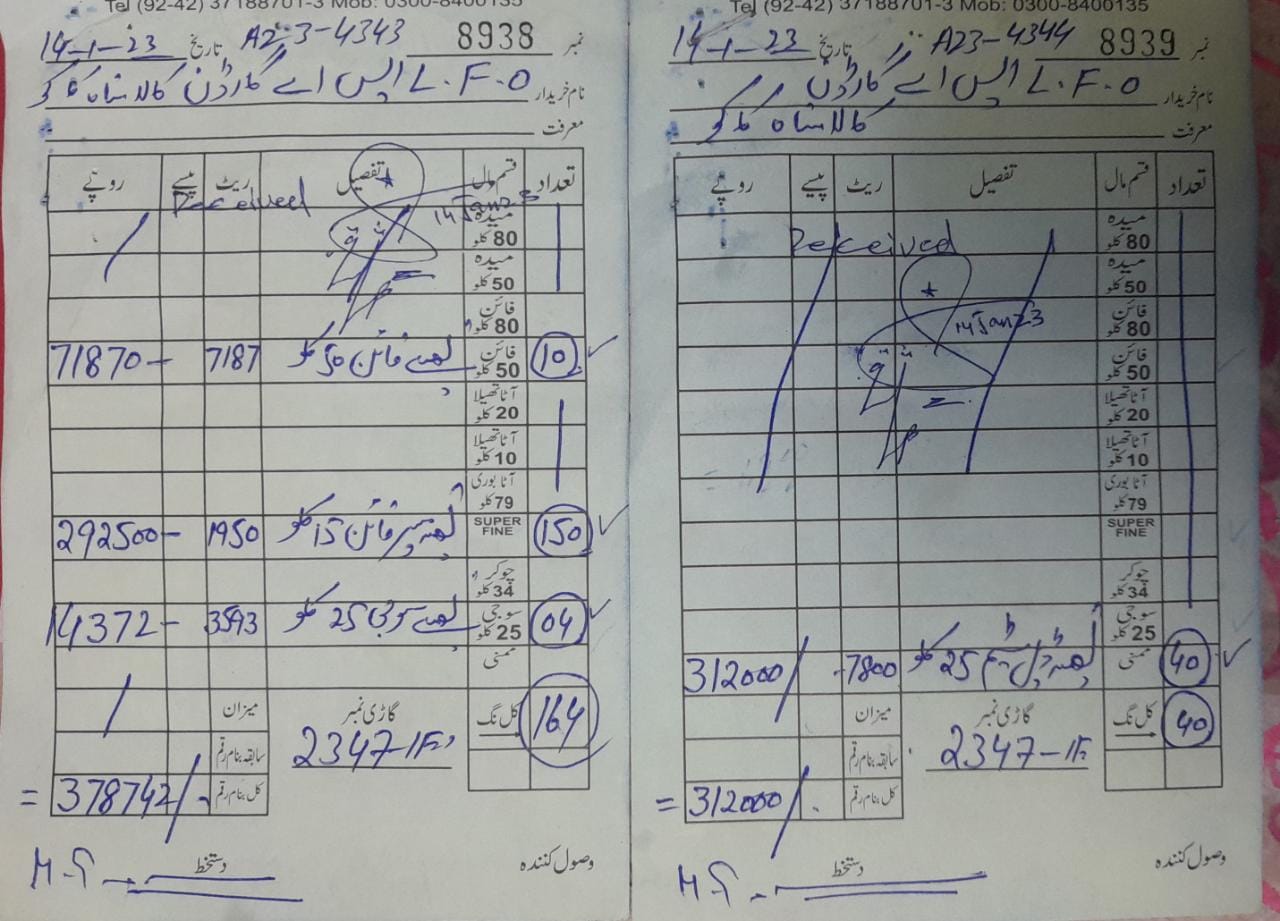 Tel (92-42) 37188701-3 Mob: 0300-8400135
نمبر 8938 A23-4343 تاریخ 14-1-23
نام خریدار L.F.O ایس اے گارڈن کالاشاہ کاکو
معرفت
تعداد قسم مال تفصیل ریٹ پیسے روپے
Received
14 Jan 23
میدہ 80 کلو
میدہ 50 کلو
فائن 80 کلو
10 فائن 50 کلو فائن 50 کلو 7187 71870-
آٹا تھیلا 20 کلو
آٹا تھیلا 10 کلو
آٹا بوری 79 کلو
150 SUPER FINE سپر فائن 15 کلو 1950 292500-
چوکر 34 کلو
04 سوجی 25 کلو سوجی 25 کلو 3593 14372-
ممنی
164 کل نگ گاڑی نمبر میزان
2347- سابقہ بنام رقم
کل بنام رقم = 378742/
وصول کنندہ دستخط
Tel (92-42) 37188701-3 Mob: 0300-8400135
نمبر 8939 A23-4344 تاریخ 14-1-23
نام خریدار L.F.O ایس اے گارڈن
معرفت کالاشاہ کاکو
تعداد قسم مال تفصیل ریٹ پیسے روپے
میدہ 80 کلو
Received
میدہ 50 کلو
فائن 80 کلو
14 Jan 23
فائن 50 کلو
آٹا تھیلا 20 کلو
آٹا تھیلا 10 کلو
آٹا بوری 79 کلو
SUPER FINE
چوکر 34 کلو
سوجی 25 کلو
40 ممنی 25 کلو 7800 312000/
40 کل نگ گاڑی نمبر میزان
2347- سابقہ بنام رقم
کل بنام رقم = 312000/
وصول کنندہ دستخط